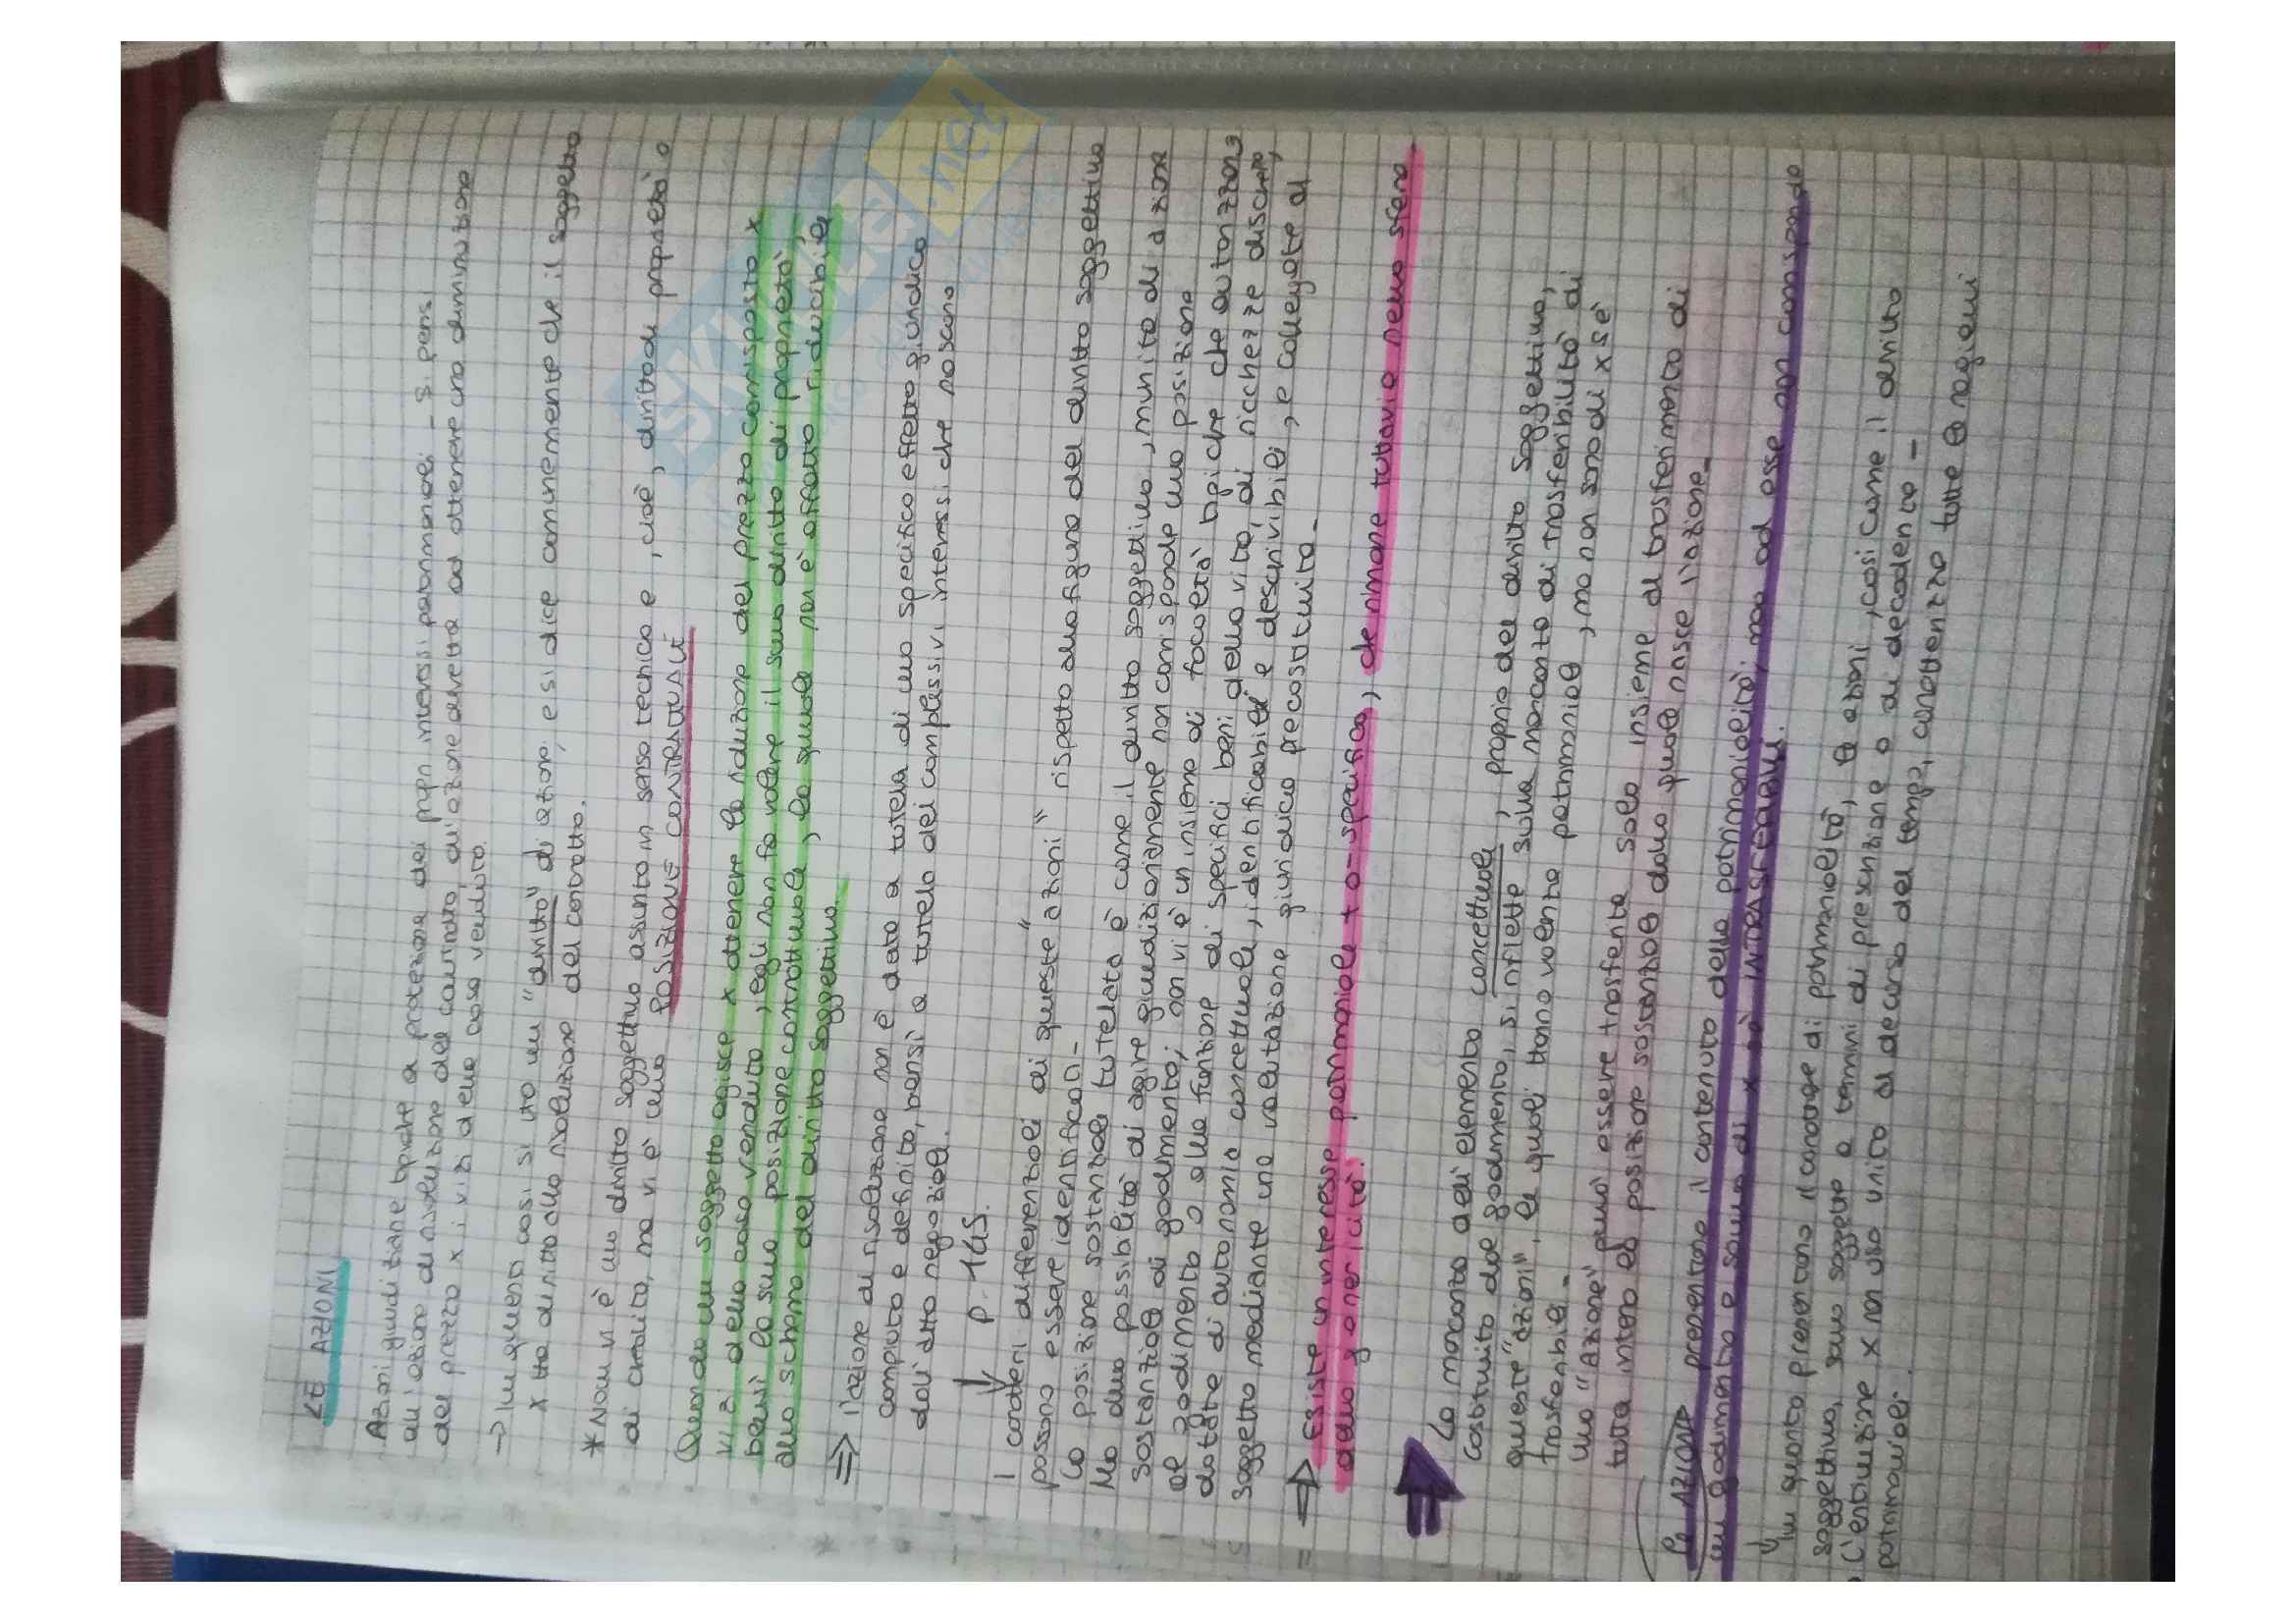 LE AZIONI
Azioni giudiziarie tipiche a protezione dei propri interessi patrimoniali _ Si pensi
all'azione di risoluzione del contratto, all'azione diretta ad ottenere una diminuzione
del prezzo x i vizi della cosa venduta.
→ In questi casi si ha un "diritto" di azione, e si dice comunemente che il soggetto
x ha diritto alla risoluzione del contratto.
* Non vi è un diritto soggettivo assunto in senso tecnico e, cioè, diritto di proprietà o
di credito, ma vi è una POSIZIONE CONTRATTUALE
Quando un soggetto agisce x ottenere la riduzione del prezzo corrisposto x
vizi della cosa venduta, egli non fa valere il suo diritto di proprietà,
bensì la sua posizione contrattuale, la quale non è affatto riducibile
allo schema del diritto soggettivo.
⇒ l'azione di risoluzione non è data a tutela di uno specifico effetto giuridico
compiuto e definito, bensì a tutela dei complessivi interessi che nascono
dall'atto negoziale.
↓ p. 145.
I caratteri differenziali di queste "azioni" rispetto alla figura del diritto soggettivo
possono essere identificati _
La posizione sostanziale tutelata è come il diritto soggettivo, munito di azione
Ma alla possibilità di agire giudizialmente non corrisponde una posizione
sostanziale di godimento; non vi è un insieme di facoltà tipiche che autorizzano
al godimento o alla fruizione di specifici beni della vita, di ricchezze discrete,
dotate di autonomia concettuale, identificabili e descrivibili, e collegate al
soggetto mediante una valutazione giuridica precostituita _
⇒ Esiste un interesse patrimoniale + o - specifico, che rimane tuttavia nella sfera
della genericità.
⇒ La mancanza dell'elemento concettuale, proprio del diritto soggettivo,
costituito dal godimento, si riflette sulla mancanza di trasferibilità di
queste "azioni", le quali hanno valenza patrimoniale, ma non sono di x sè
trasferibili _
Una "Azione" può essere trasferita solo insieme al trasferimento di
tutta intera la posizione sostanziale dalla quale nasce l'azione _
Le AZIONI presentano il contenuto della patrimonialità, ma ad esse non corrisponde
un godimento e sono di x sè INTRASFERIBILI.
↓ In quanto presentano il carattere di patrimonialità, le azioni, così come il diritto
soggettivo, sono soggette a termini di prescrizione o di decadenza _
L'estinzione x non uso unito al decorso del tempo, caratterizza tutte le ragioni
patrimoniali.